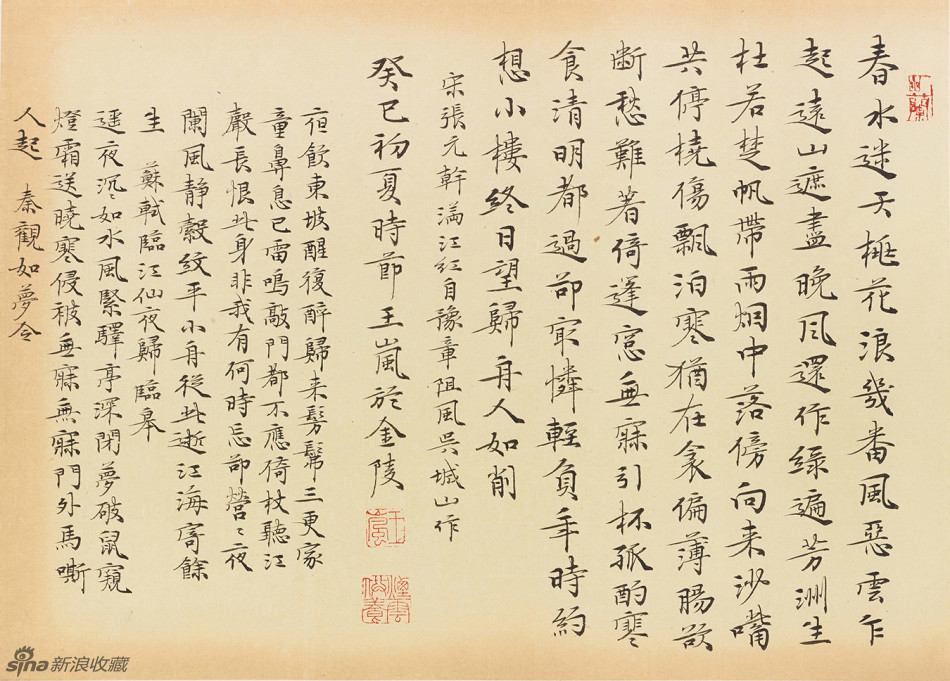 春水迷天桃花浪幾番風惡雲乍
起遠山遮盡晚风還作綠遍芳洲生
杜若楚帆帶雨烟中落傍向来沙嘴
共停橈傷飄泊寒猶在衾偏薄腸欲
断愁難著倚蓬窓無寐引杯孤酌寒
食清明都過却㝡憐輕負年時約
想小樓終日望歸舟人如削
宋張元幹滿江紅自豫章阻風吳城山作
癸巳初夏時節王嵐於金陵
王嵐
煙雲供養
夜飲東坡醒復醉歸来髣髴三更家
童鼻息已雷鳴敲門都不應倚杖聽江
聲長恨此身非我有何時忘却營〻夜
闌風靜縠紋平小舟從此逝江海寄餘
生 蘇軾臨江仙夜歸臨皋
遥夜沉〻如水風緊驛亭深閉夢破鼠窺
燈霜送曉寒侵被無寐無寐門外馬嘶
人起 秦觀如夢令
sina新浪收藏